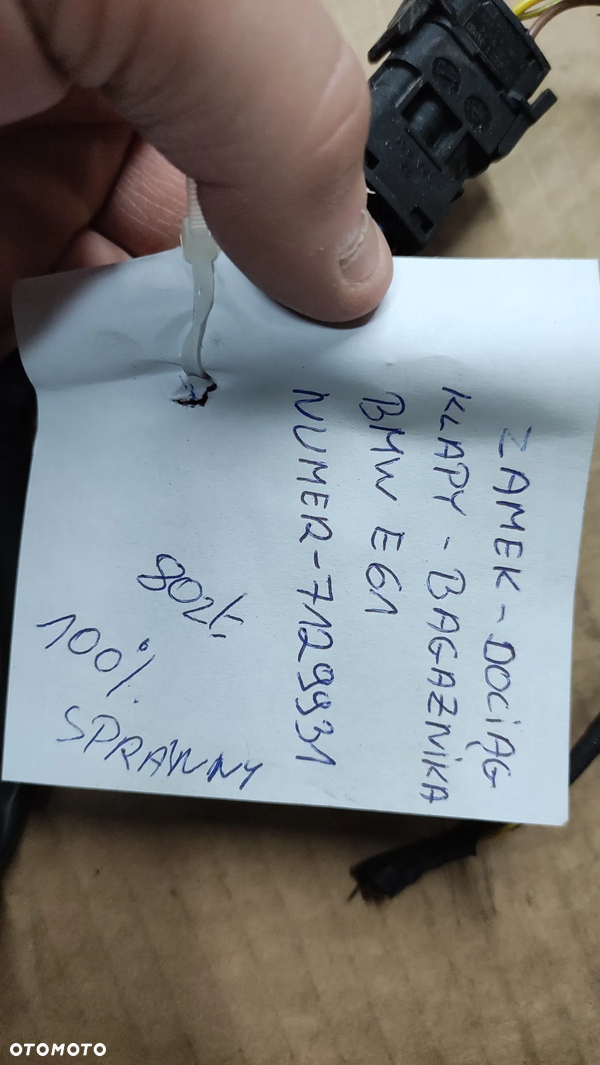 ZAMEK - DOCIĄG
KLAPY - BAGAŻNIKA
BMW E61
NUMER - 7129931
80zł.
100%
SPRAWNY
OTOMOTO